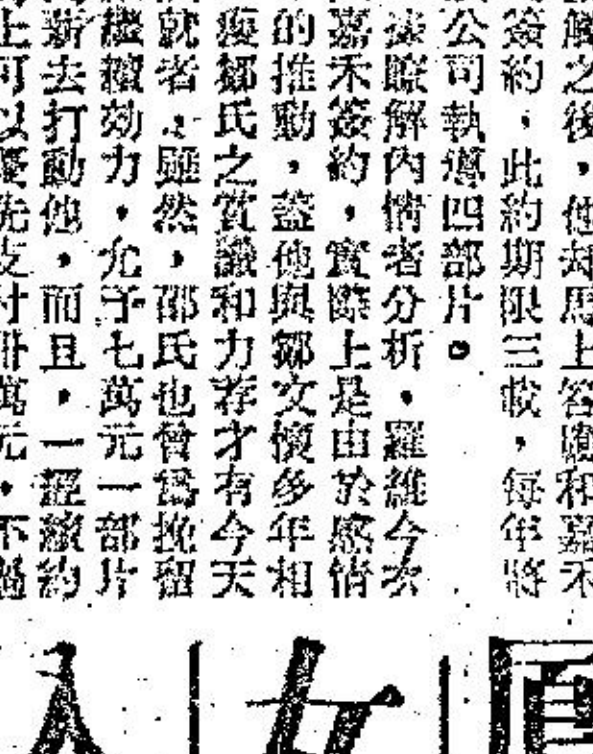 觸之後，他却馬上答應和嘉禾
簽約，此約期限三載，每年將
公司執導四部片。
據瞭解內情者分析，羅維今次
嘉禾簽約，實際上是由於感情
的推動，蓋他與鄒文懷多年相
鄒氏之賞識和力荐才有今天
就者。雖然，邵氏也曾爲挽留
繼續効力，允予七萬元一部片
新去打動他，而且，一經簽約
上可以優先支付卅萬元，不過
女